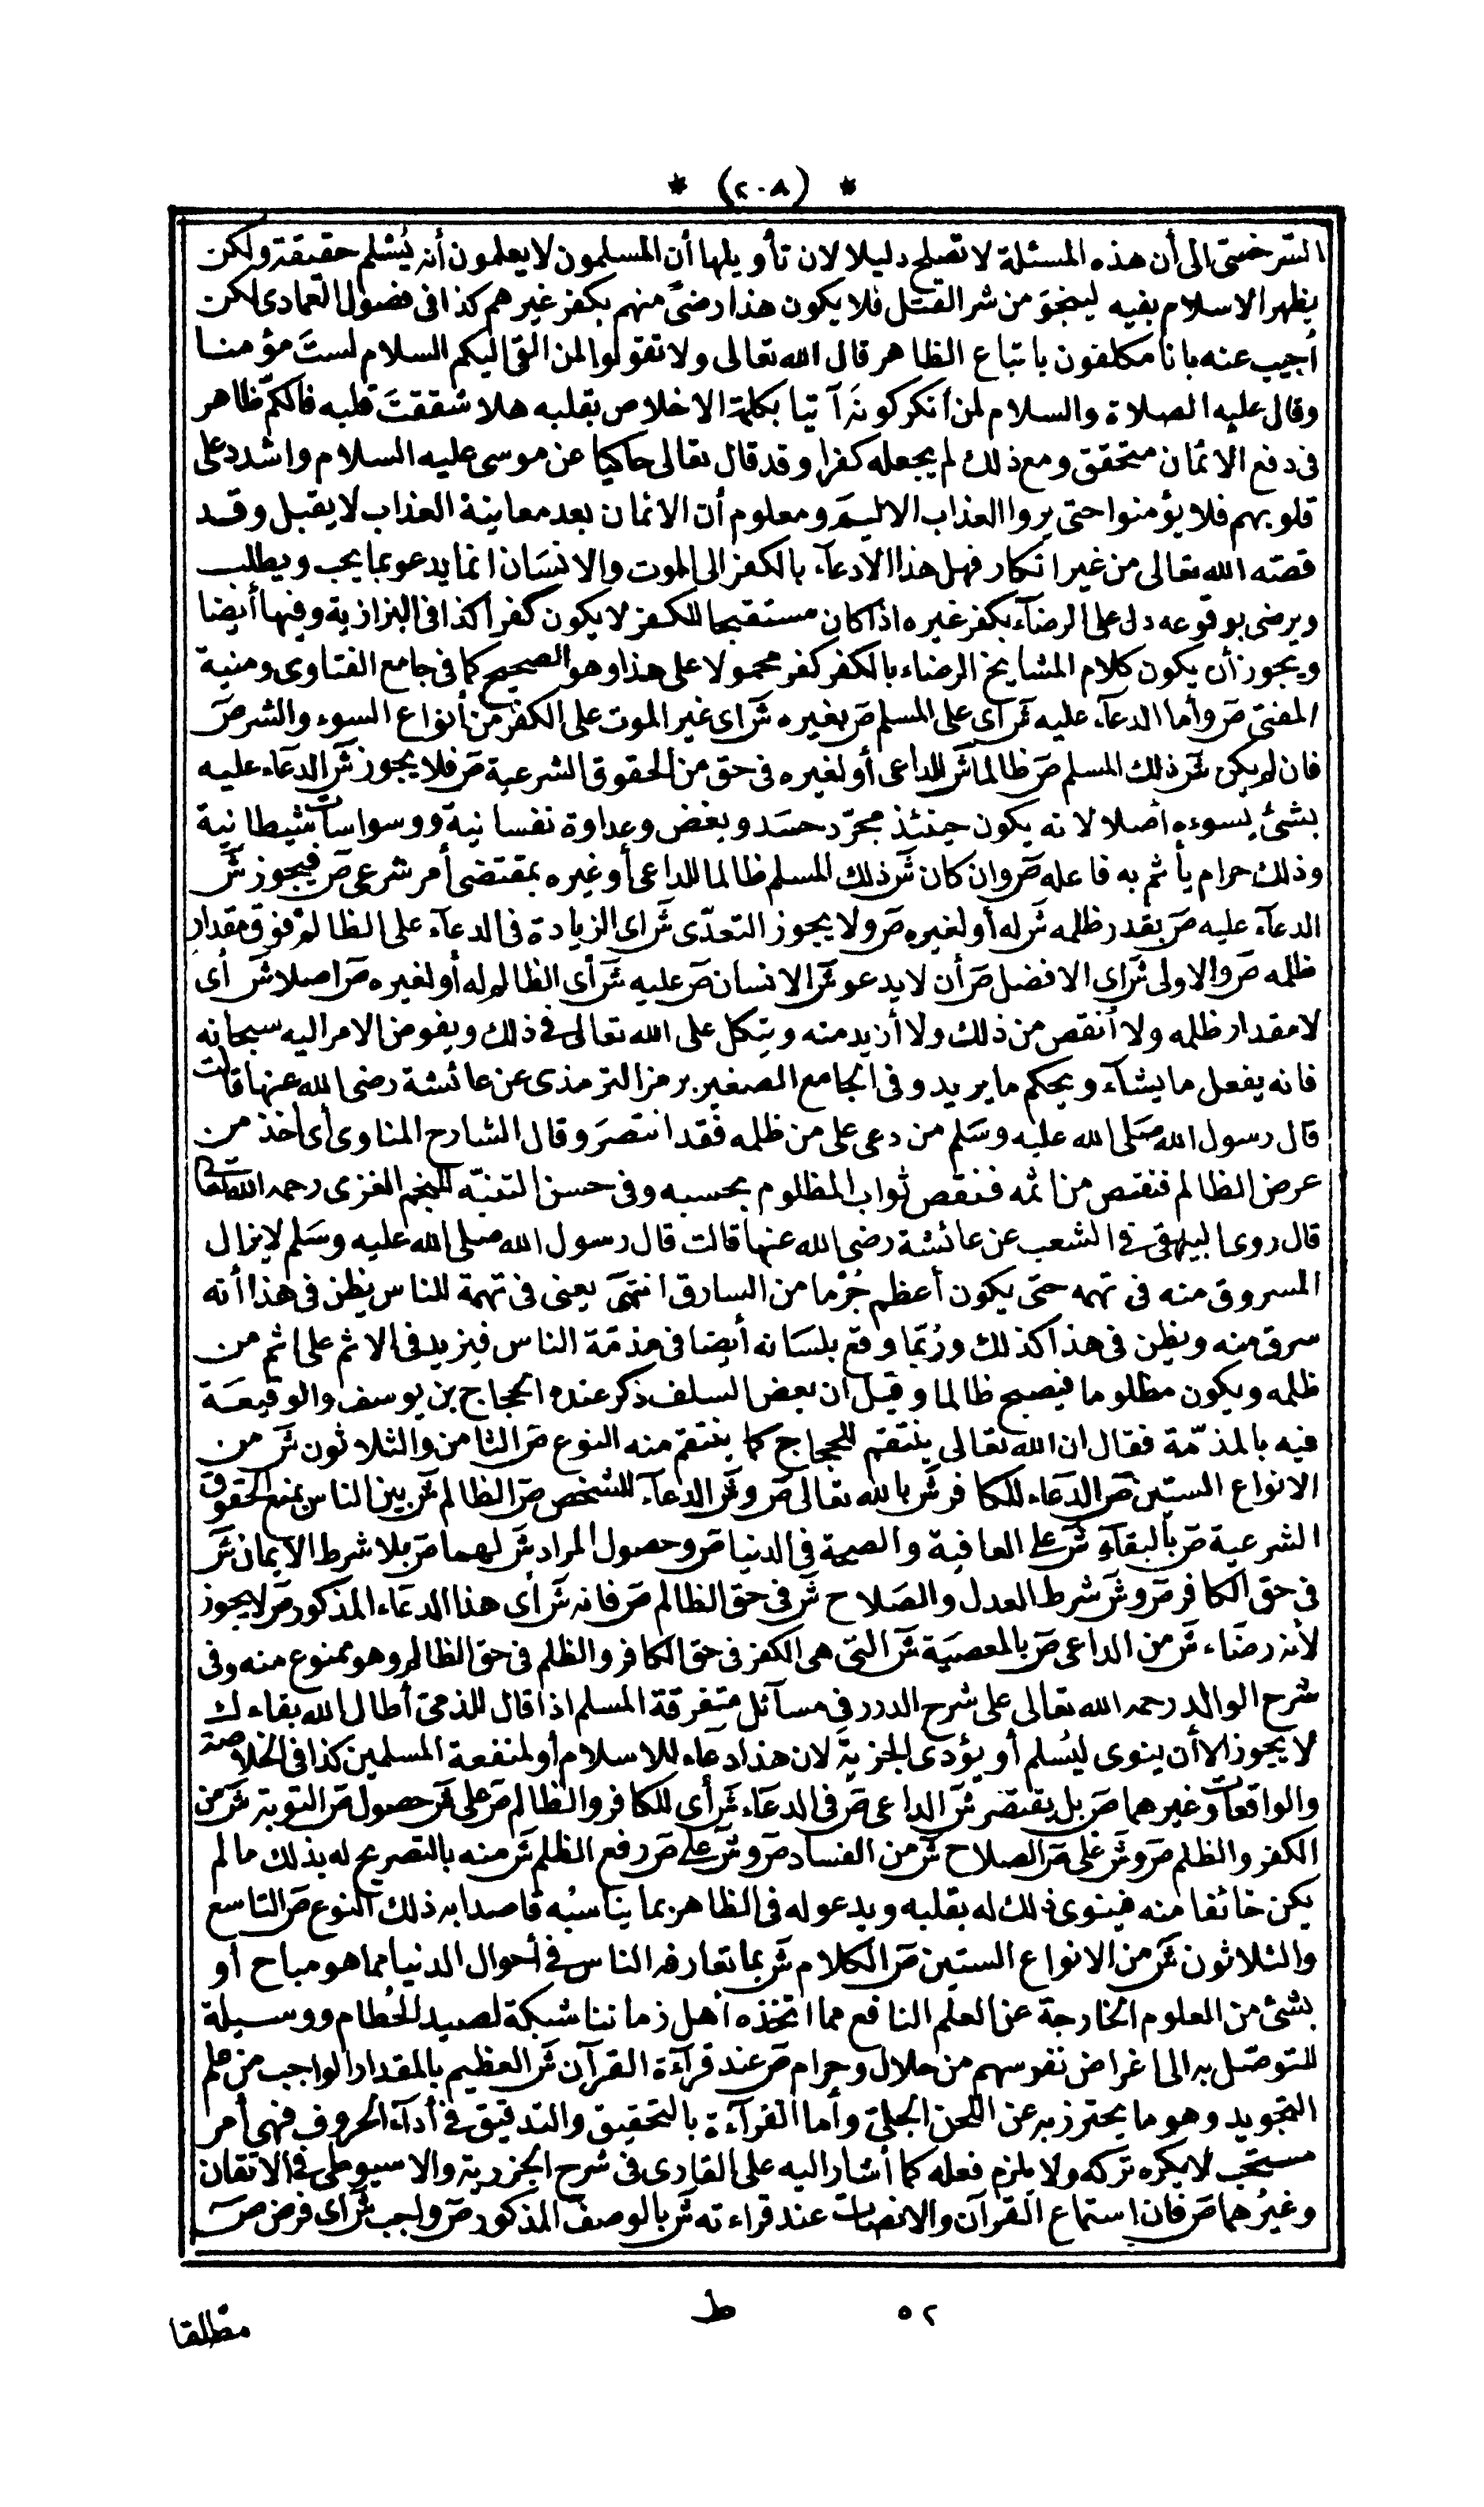 * (٢٠٨) *
السرخسى الى أن هذه المسئلة لا تصلح دليلا لان تأويلها أن المسلمون لا يعلمون أنه يُسْلم حقيقة ولكن
يظهر الاسلام بفيه لينجوَ من شر القتل فلا يكون هذا رضىً منهم بكفر غيرهم كذا فى فصول العمادى لكن
أجيب عنه بانا مكلفون باتباع الظاهر قال الله تعالى ولا تقولوا لمن القى اليكم السلام لستَ مؤمنا
وقال عليه الصلاة والسلام لمن أنكر كونه آتيا بكلمة الاخلاص بقلبه هلا شققتَ قلبه فالحكم ظاهر
فى دفع الائمان متحقق ومع ذلك لم يجعله كفرا وقد قال تعالى حاكيا عن موسى عليه السلام واشدد على
قلوبهم فلا يؤمنوا حتى يروا العذاب الاليم ومعلوم أن الائمان بعد معاينة العذاب لا يقبل وقد
قصّه الله تعالى من غير انكار فهل هذا الا دعآء بالكفر الى الموت والانسَان انما يدعو بما يحب ويطلب
ويرضى بوقوعه دل على الرضآء بكفر غيره اذا كان مستقبحا للكفر لا يكون كفرا كذا فى البزازية وفيها أيضا
ويجوز أن يكون كلام المشايخ الرضاء بالكفر كفر محمولا على هذا وهو الصحيح كما فى جامع الفتاوى ومنية
المفتى صَ وأما الدعآء عليه شَ اى على المسلم صَ بغيره شَ اى غير الموت على الكفر من أنواع السوء والشر صَ
فان لم يكن شَ ذلك المسلم صَ ظالما شَ للداعى أو لغيره فى حق من الحقوق الشرعية صَ فلا يجوز شَ الدعَاء عليه
بشئ يسوءه أصلا لانه يكون حينئذ مجرّد حسَد وبغض وعداوة نفسانية ووسواسات شيطانية
وذلك حرام يأثم به فاعله صَ وان كان شَ ذلك المسلم ظالما للداعى أو غيره بمقتضى أمر شرعى صَ فيجوز شَ
الدعآء عليه صَ بقدر ظلمه شَ له أو لغيره صَ ولا يجوز التعدّى شَ اى الزيادة فى الدعآء على الظالم فوق مقدار
ظلمه صَ والاولى شَ اى الافضل صَ أن لا يدعو شَ الانسان صَ عليه شَ أى الظالم له أو لغيره صَ اصلا شَ أى
لا مقدار ظلمه ولا أنقص من ذلك ولا أزيد منه ويتكل على الله تعالى فى ذلك ويفوض الامر اليه سبحانه
فانه يفعل ما يشآء ويحكم ما يريد وفى الجامع الصغير برمز الترمذى عن عائشة رضى الله عنها قالت
قال رسول الله صَلى الله عليه وسَلم من دعى على من ظلمه فقد انتصرَ وقال الشارح المناوى أى أخذ من
عرض الظالم فنقص من اثمه فنقص ثواب المظلوم بحسبه وفى حسن التنبّه للنجم الغزى رحمه الله تعالى
قال روى البيهقى فى الشعب عن عائشة رضى الله عنها قالت قال رسول الله صلى الله عليه وسَلم لا يزال
المسروق منه فى تهمه حتى يكون أعظم جُرْما من السارق انتهى يعنى فى تهمة للناس يظن فى هذا أنه
سرق منه ويظن فى هذا كذلك ورُبّما وقع بلسَانه أيضا فى مذمّة الناس فيزيد فى الاثم على اثم من
ظلمه ويكون مظلوما فيصبح ظالما وقيل ان بعض السلف ذكر عنده الحجاج بن يوسف والوقيعَة
فيه بالمذمّة فقال ان الله تعالى ينتقم للحجاج كما ينتقم منه النوع صَ الثامن والثلاثون شَ من
الانواع الستين صَ الدعَاء للكافر شَ بالله تعالى صَ وشَ الدعآء للشخص صَ الظالم شَ بين الناس بمنع الحقوق
الشرعية صَ بالبقآء شَ على العافية والصحة فى الدنيا صَ وحصول المراد شَ لهما صَ بلا شرط الايمان شَ
فى حق الكافر صَ وشَ شرط العدل والصَلاح شَ فى حق الظالم صَ فانه شَ أى هذا الدعَاء المذكور صَ لا يجوز
لأنه رضَاء شَ من الداعى صَ بالمعصيَة شَ التى هى الكفر فى حق الكافر والظلم فى حق الظالم وهو ممنوع منه وفى
شرح الوالد رحمه الله تعالى على شرح الدرر فى مسآئل متفرقة المسلم اذا قال للذمى أطال الله بقاءك
لا يجوز الا أن ينوى ليُسلم أو يؤدى الجزية لان هذا دعاء للاسلام أو لمنفعة المسلمين كذا فى الخلاصة
والواقعات وغيرهما صَ بل يقتصر شَ الداعى صَ فى الدعَاء شَ أى للكافر والظالم صَ على شَ حصول صَ التوبة شَ من
الكفر والظلم صَ وشَ على صَ الصلاح شَ من الفساد صَ وشَ على صَ رفع الظلم شَ منه بالتصريح له بذلك ما لم
يكن خائفا منه فينوى ذلك له بقلبه ويدعو له فى الظاهر بما يناسبُه قاصدا به ذلك النوع صَ التاسع
والثلاثون شَ من الانواع الستين صَ الكلام شَ بما تعارفه الناس فى أحوال الدنيا مما هو مباح أو
بشئ من العلوم الخارجة عن العلم النافع مما اتخذه أهل زماننا شبكة لصيد الحُطام ووسيلة
للتوصّل به الى اغراض نفوسهم من حلال وحرام صَ عند قرآءة القرآن شَ العظيم بالمقدار الواجب من علم
التجويد وهو ما يحترز به عن اللحن الجلىّ وأما القرآءة بالتحقيق والتدقيق فى أدآء الحروف فهى أمر
مستحب لا يكره تركه ولا يلزم فعله كما أشار اليه على القارى فى شرح الجزرية والاسيوطى فى الاتقان
وغيرُهما صَ فان استماع القرآن والانصات عند قراءته شَ بالوصف المذكور صَ واجب شَ اى فرض صَ
٥٢ ط مطلقا